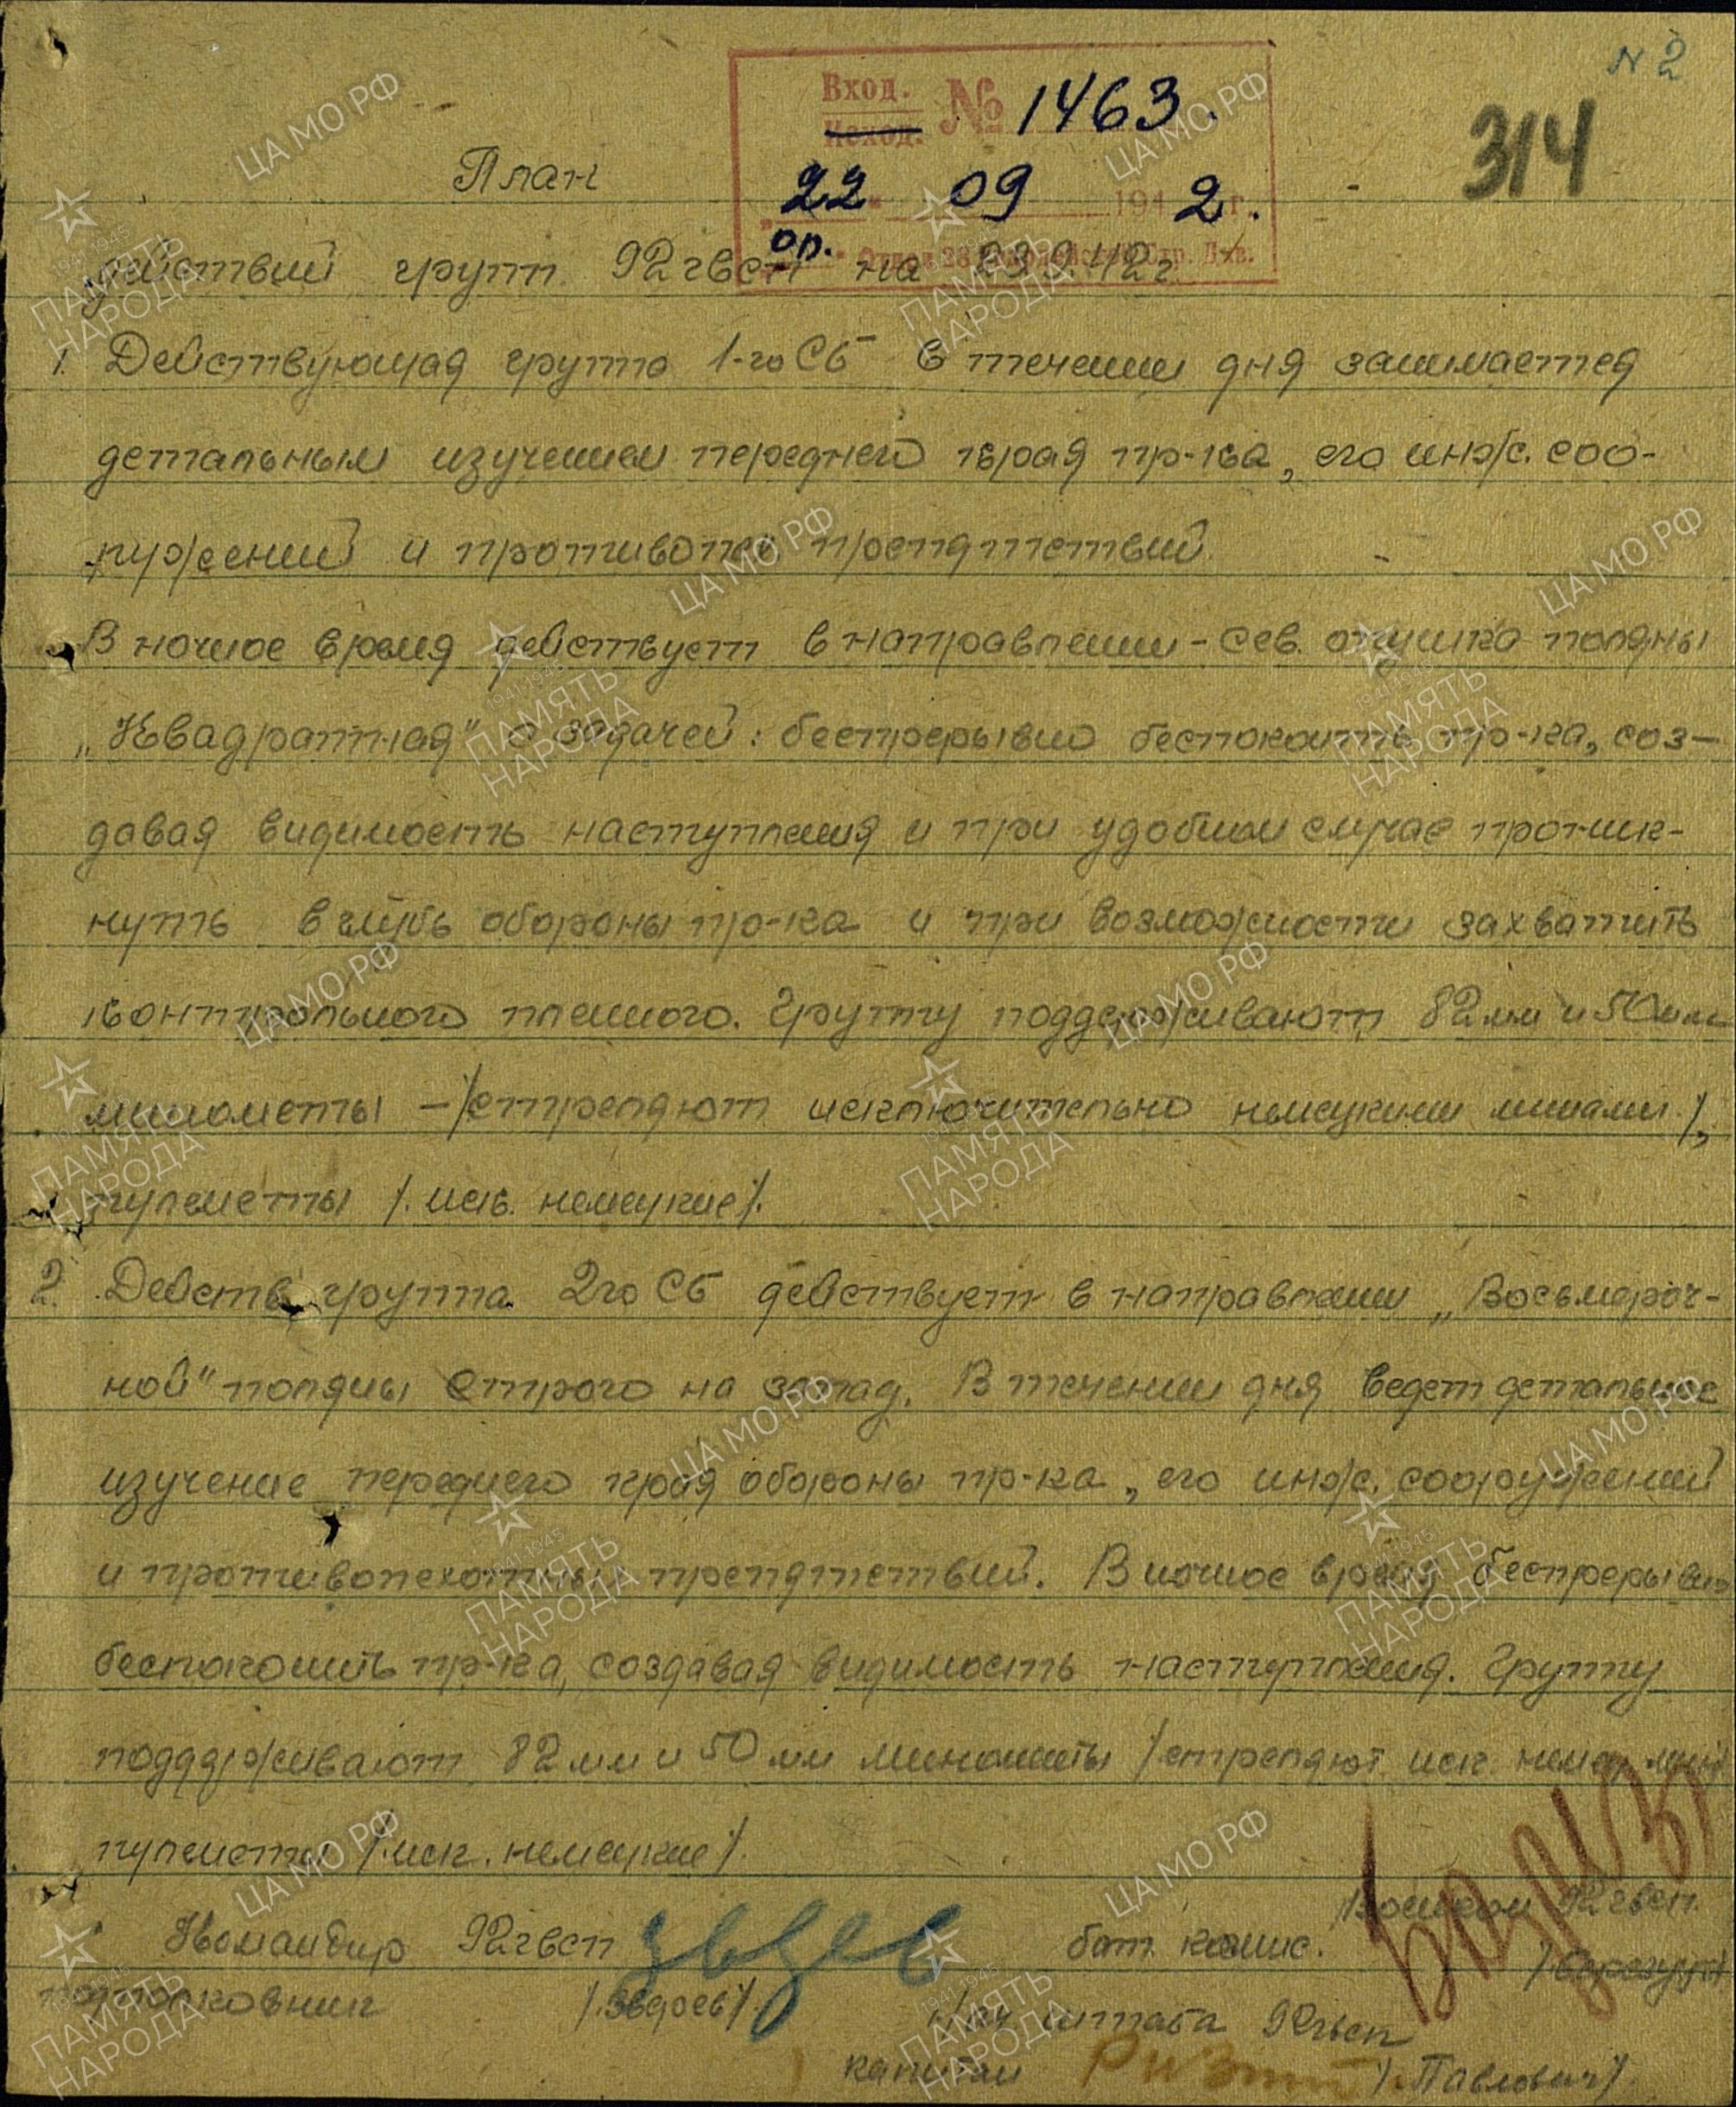 N 2
Вход. № 1463.
Исход.
314
План
„22" 09 1942 г.
оп. Отдел 28 Гвардейской Стр. Див.
действий групп 92 гвсп на 23.9.42 г
1. Действующая группа 1-го СБ в течении дня занимается
детальным изучением передней края пр-ка, его инж. соо-
ружений и противопех препятствий.
В ночное время действует в направлении - сев. опушка поляны
„Квадратная" с задачей: беспрерывно беспокоить пр-ка, соз-
давая видимость наступления и при удобном случае проник-
нуть в глубь обороны пр-ка и при возможности захватить
контрольного пленного. Группу поддерживают 82 мм и 50 мм
минометы – /стреляют исключительно немецкими минами./,
пулеметы /. иск. немецкие/.
2. Действ. группа 2го СБ действует в направлении „Восьмероч-
ной" поляны строго на запад. В течении дня ведет детальное
изучение переднего края обороны пр-ка, его инж. сооружений
и противопехотных препятствий. В ночное время беспрерывно
беспокоить пр-ка, создавая видимость наступления. Группу
поддерживают 82 мм и 50 мм минометы /стреляют иск. немец. мин
пулеметы /.иск. немецкие/.
Командир 92 гвсп
подполковник
Военком 92 гвсп.
бат. комис.
Нач штаба 92 гвсп
капитан /.Павлович/.
ЦА МО РФ
1941-1945
ПАМЯТЬ
НАРОДА